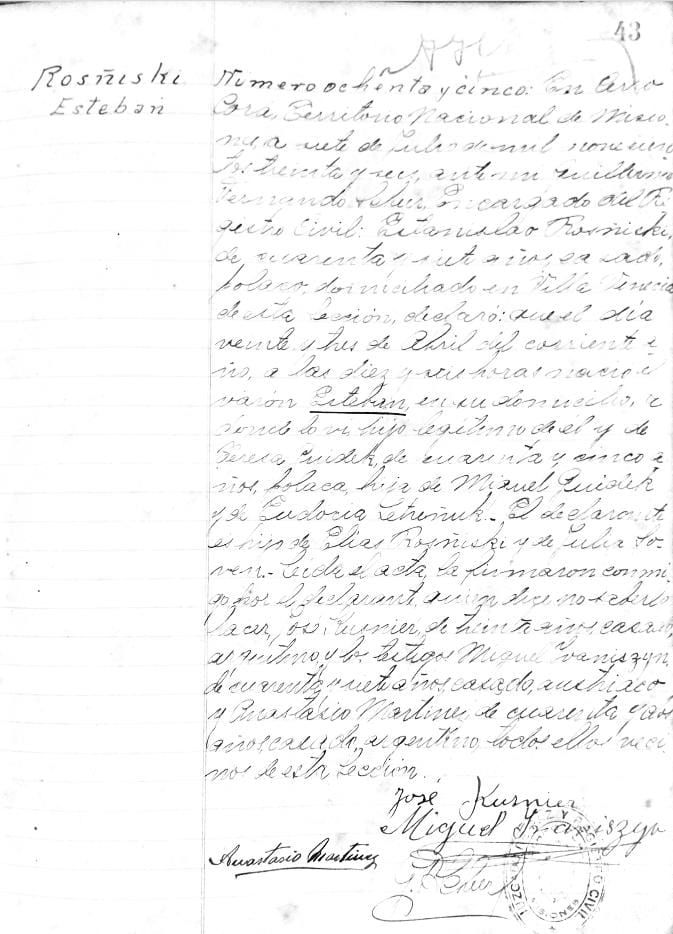 43
Rosñiski
Esteban
Numero ochenta y cinco: En Cerro
Cora, Territorio Nacional de Misio
nes, a siete de Julio de mil novecien
tos treinta y seis, ante mi Guillermo
Fernando Encargado del Re
gistro Civil: Estanislao Rosñiski,
de cuarenta y siete años, casado,
polaco, domiciliado en Villa Venecia
de esta Sección, declaró: que el día
veinte y tres de Abril del corriente a
ño, a las diez y seis horas nació el
varón Esteban, en su domicilio, a
donde lo vi, hijo legitimo de él y de
Teresa Quidek, de cuarenta y cinco a
ños, polaca, hija de Miguel Quidek
y de Eudocia - El declarante
es hijo de Elias Rosñiski y de Julia So
ven.- Leida el acta, la firmaron conmi
go por el declarante, quien dice no saberlo
hacer, José Kusnier, de treinta años, casado,
argentino, y los testigos Miguel Ivaniszyn,
de cuarenta y siete años, casado, austriaco
y Anastasio Martinez, de cuarenta y dos
años, casado, argentino, todos ellos veci
nos de esta Sección.
José Kusnier
Miguel Iwaniszyn
Anastasio Martinez